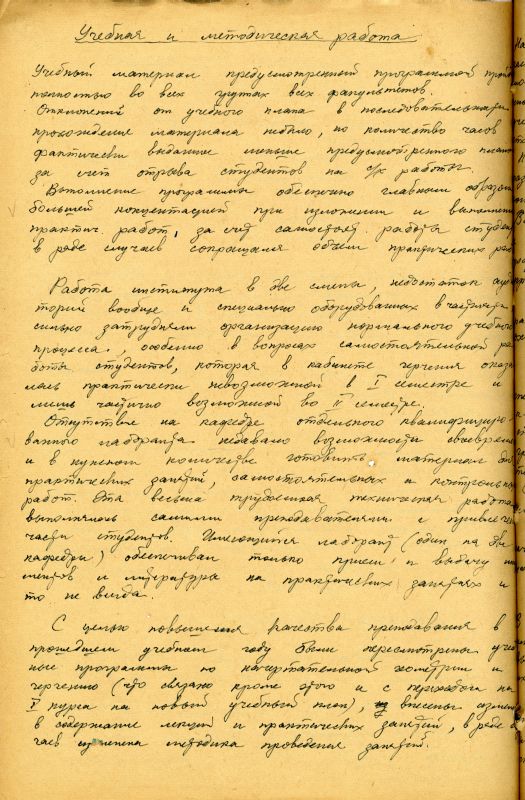 Учебная и методическая работа
Учебный материал предусмотренный программой прой
полностью во всех группах всех факультетов.
Отклонений от учебного плана в последовательности
прохождения материала небыло, но количество часов
фактически выданное меньше предусмотренного плано
за счет отрыва студентов на с/х работы.
Выполнение программы обеспечено главным образом
большей концентрацией при изложении и выполнени
практич. работ, за счет самостоят. работы студен
в ряде случаев сокращался объем практических раб
Работа института в две смены, недостаток ауди
торий вообще и специально оборудованных в частности
сильно затрудняли организацию нормального учебного
процесса, особенно в вопросах самостоятельной ра
боты студентов, которая в кабинете черчения оказа
лась практически невозможной в I семестре и
лишь частично возможной во II семестре.
Отсутствие на кафедре отдельного квалифициро
ванного лаборанта недавало возможности своевреме
и в нужном количестве готовить материал для
практических занятий, самостоятельных и контрольных
работ. Эта весьма трудоемкая техническая работа
выполнялась самими преподавателями с привлече
части студентов. Имеющийся лаборант (один на две
кафедры) обеспечивал только прием и выдачу
ментов и литературы на практических занятиях и
то не всегда.
С целью повышения качества преподавания в
прошедшем учебном году были пересмотрены учеб
ные программы по начертательной геометрии и
черчению (что связано кроме этого и с переходом на
I курса на новый учебный план), внесены измен
в содержание лекций и практических занятий, в ряде с
чаев изменена методика проведения занятий.